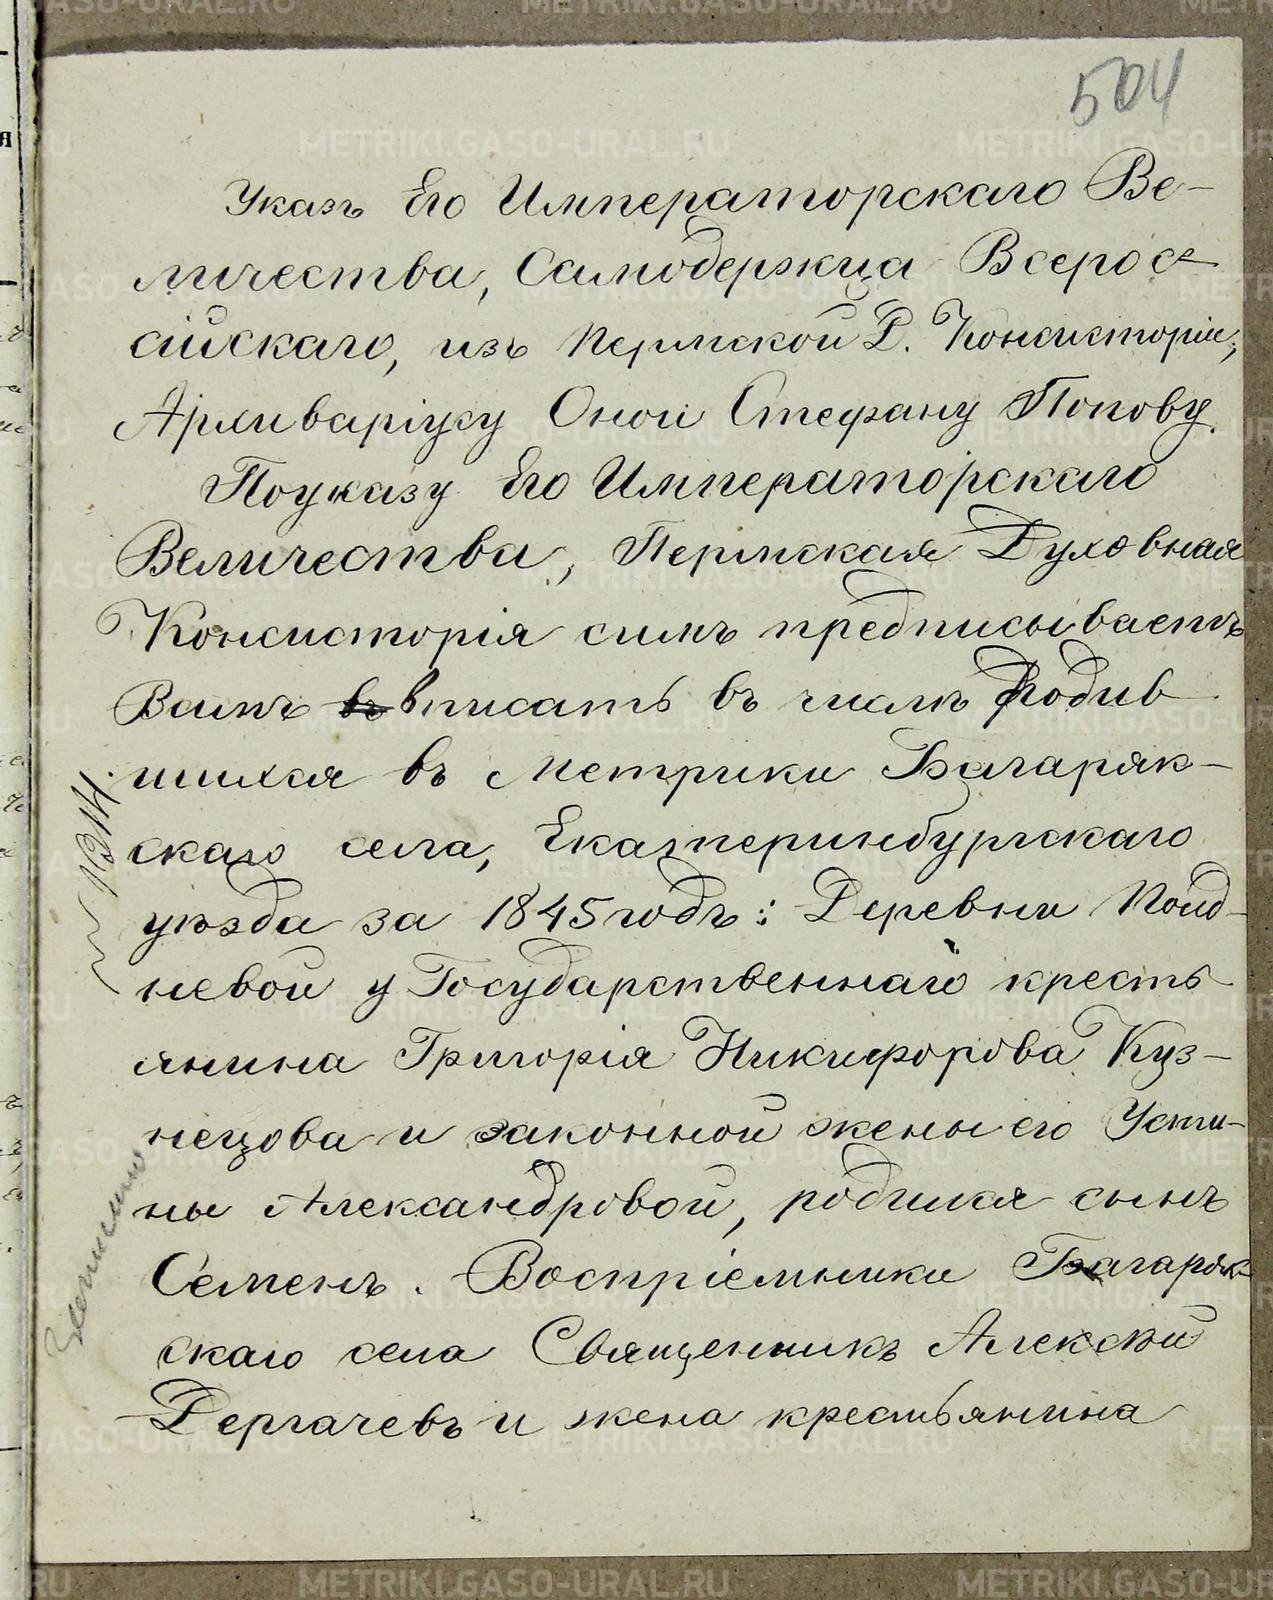 504
Указъ Его Императорскаго Ве-
личества, Самодержца Всерос-
сійскаго, изъ Пермской Д. Консисторіи,
Архиваріусу Оной Стефану Попову.
По указу Его Императорскаго
Величества, Пермская Духовная
Консисторія симъ предписываетъ
Вамъ въ вписать въ числѣ Родив
шихся въ Метрики Багаряк-
скаго села, Екатеринбургскаго
уѣзда за 1845 годъ: Деревни Полд-
невой у Государственнаго кресть
янина Григорія Никифорова Куз-
нецова и законной жены его Усти-
ны Александровой, родился сынъ
Семенъ. Воспріемники Багаряк-
скаго села Священникъ Алексѣй
Дергачевъ и жена крестьянина
METRIKI.GASO-URAL.RU